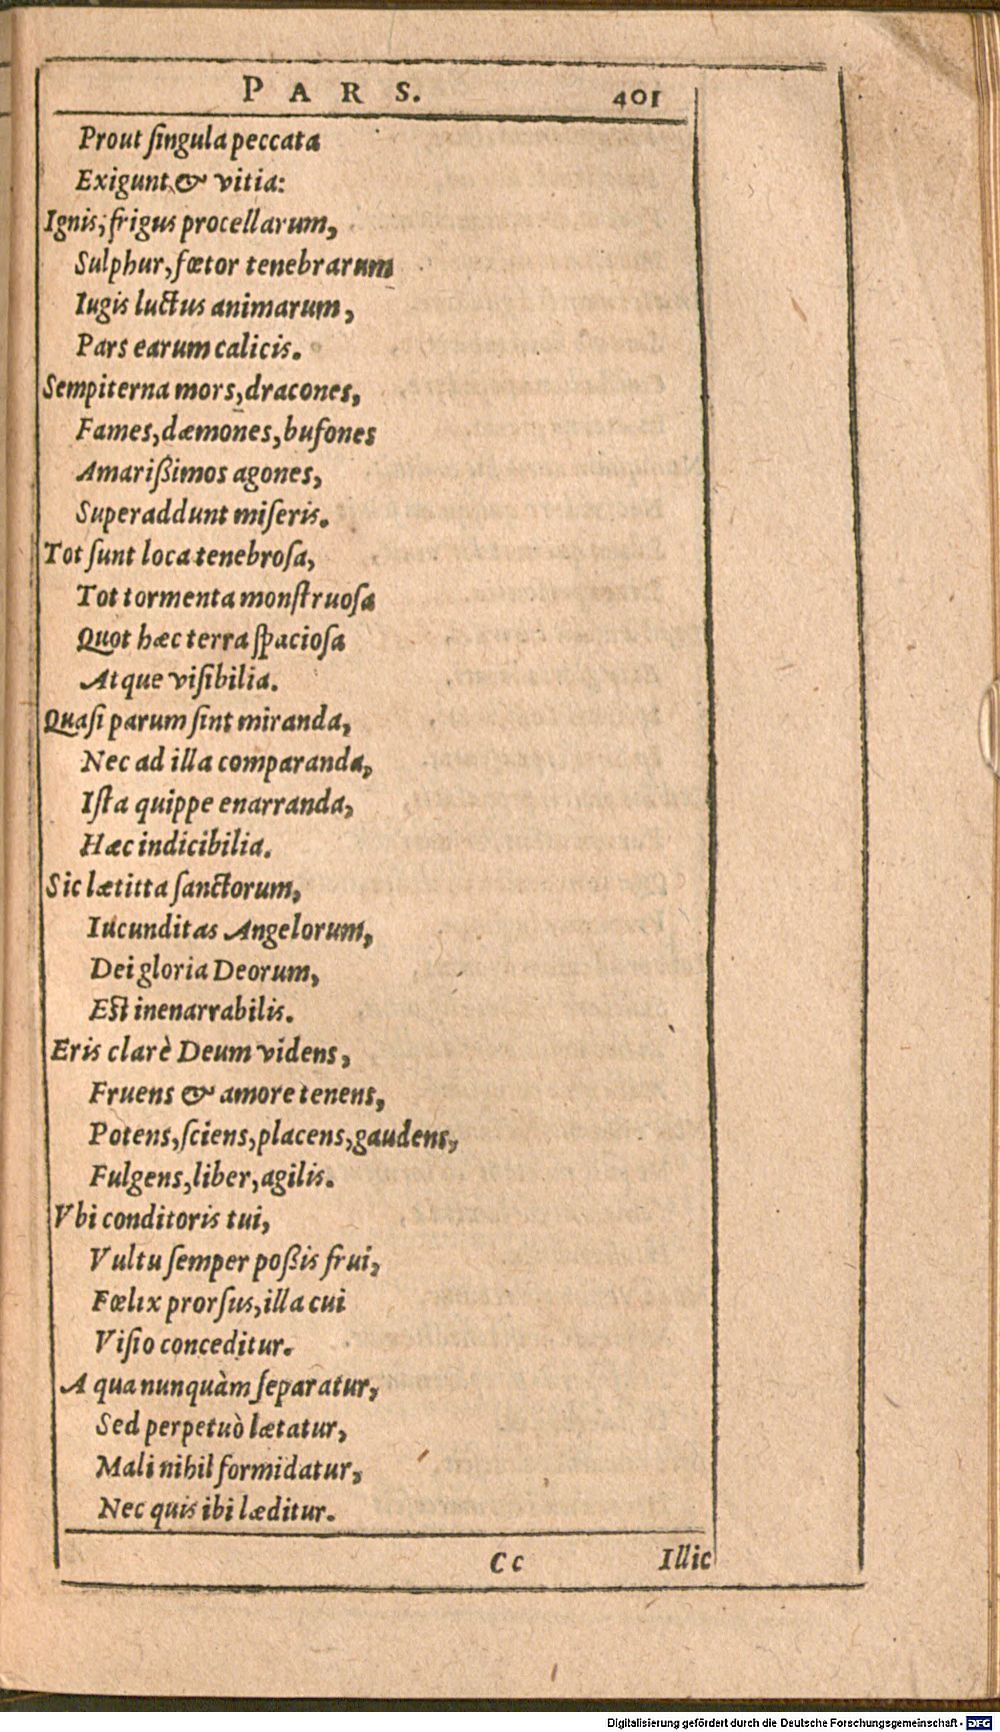 PARS. 401
Prout ſingula peccata
Exigunt & vitia:
Ignis, frigus procellarum,
Sulphur, fœtor tenebrarum
Iugis luctus animarum,
Pars earum calicis.
Sempiterna mors, dracones,
Fames, dæmones, bufones
Amarißimos agones,
Superaddunt miſeris.
Tot ſunt loca tenebroſa,
Tot tormenta monſtruoſa
Quot hæc terra ſpacioſa
Atque viſibilia.
Quaſi parum ſint miranda,
Nec ad illa comparanda,
Iſta quippe enarranda,
Hæc indicibilia.
Sic lætitta ſanctorum,
Iucunditas Angelorum,
Dei gloria Deorum,
Eſt inenarrabilis.
Eris clarè Deum videns,
Fruens & amore tenens,
Potens, ſciens, placens, gaudens,
Fulgens, liber, agilis.
Vbi conditoris tui,
Vultu ſemper poßis frui,
Fœlix prorſus, illa cui
Viſio conceditur.
A qua nunquàm ſeparatur,
Sed perpetuò lætatur,
Mali nihil formidatur,
Nec quis ibi læditur.
Cc Illic
Digitalisierung gefördert durch die Deutsche Forschungsgemeinschaft - DFG